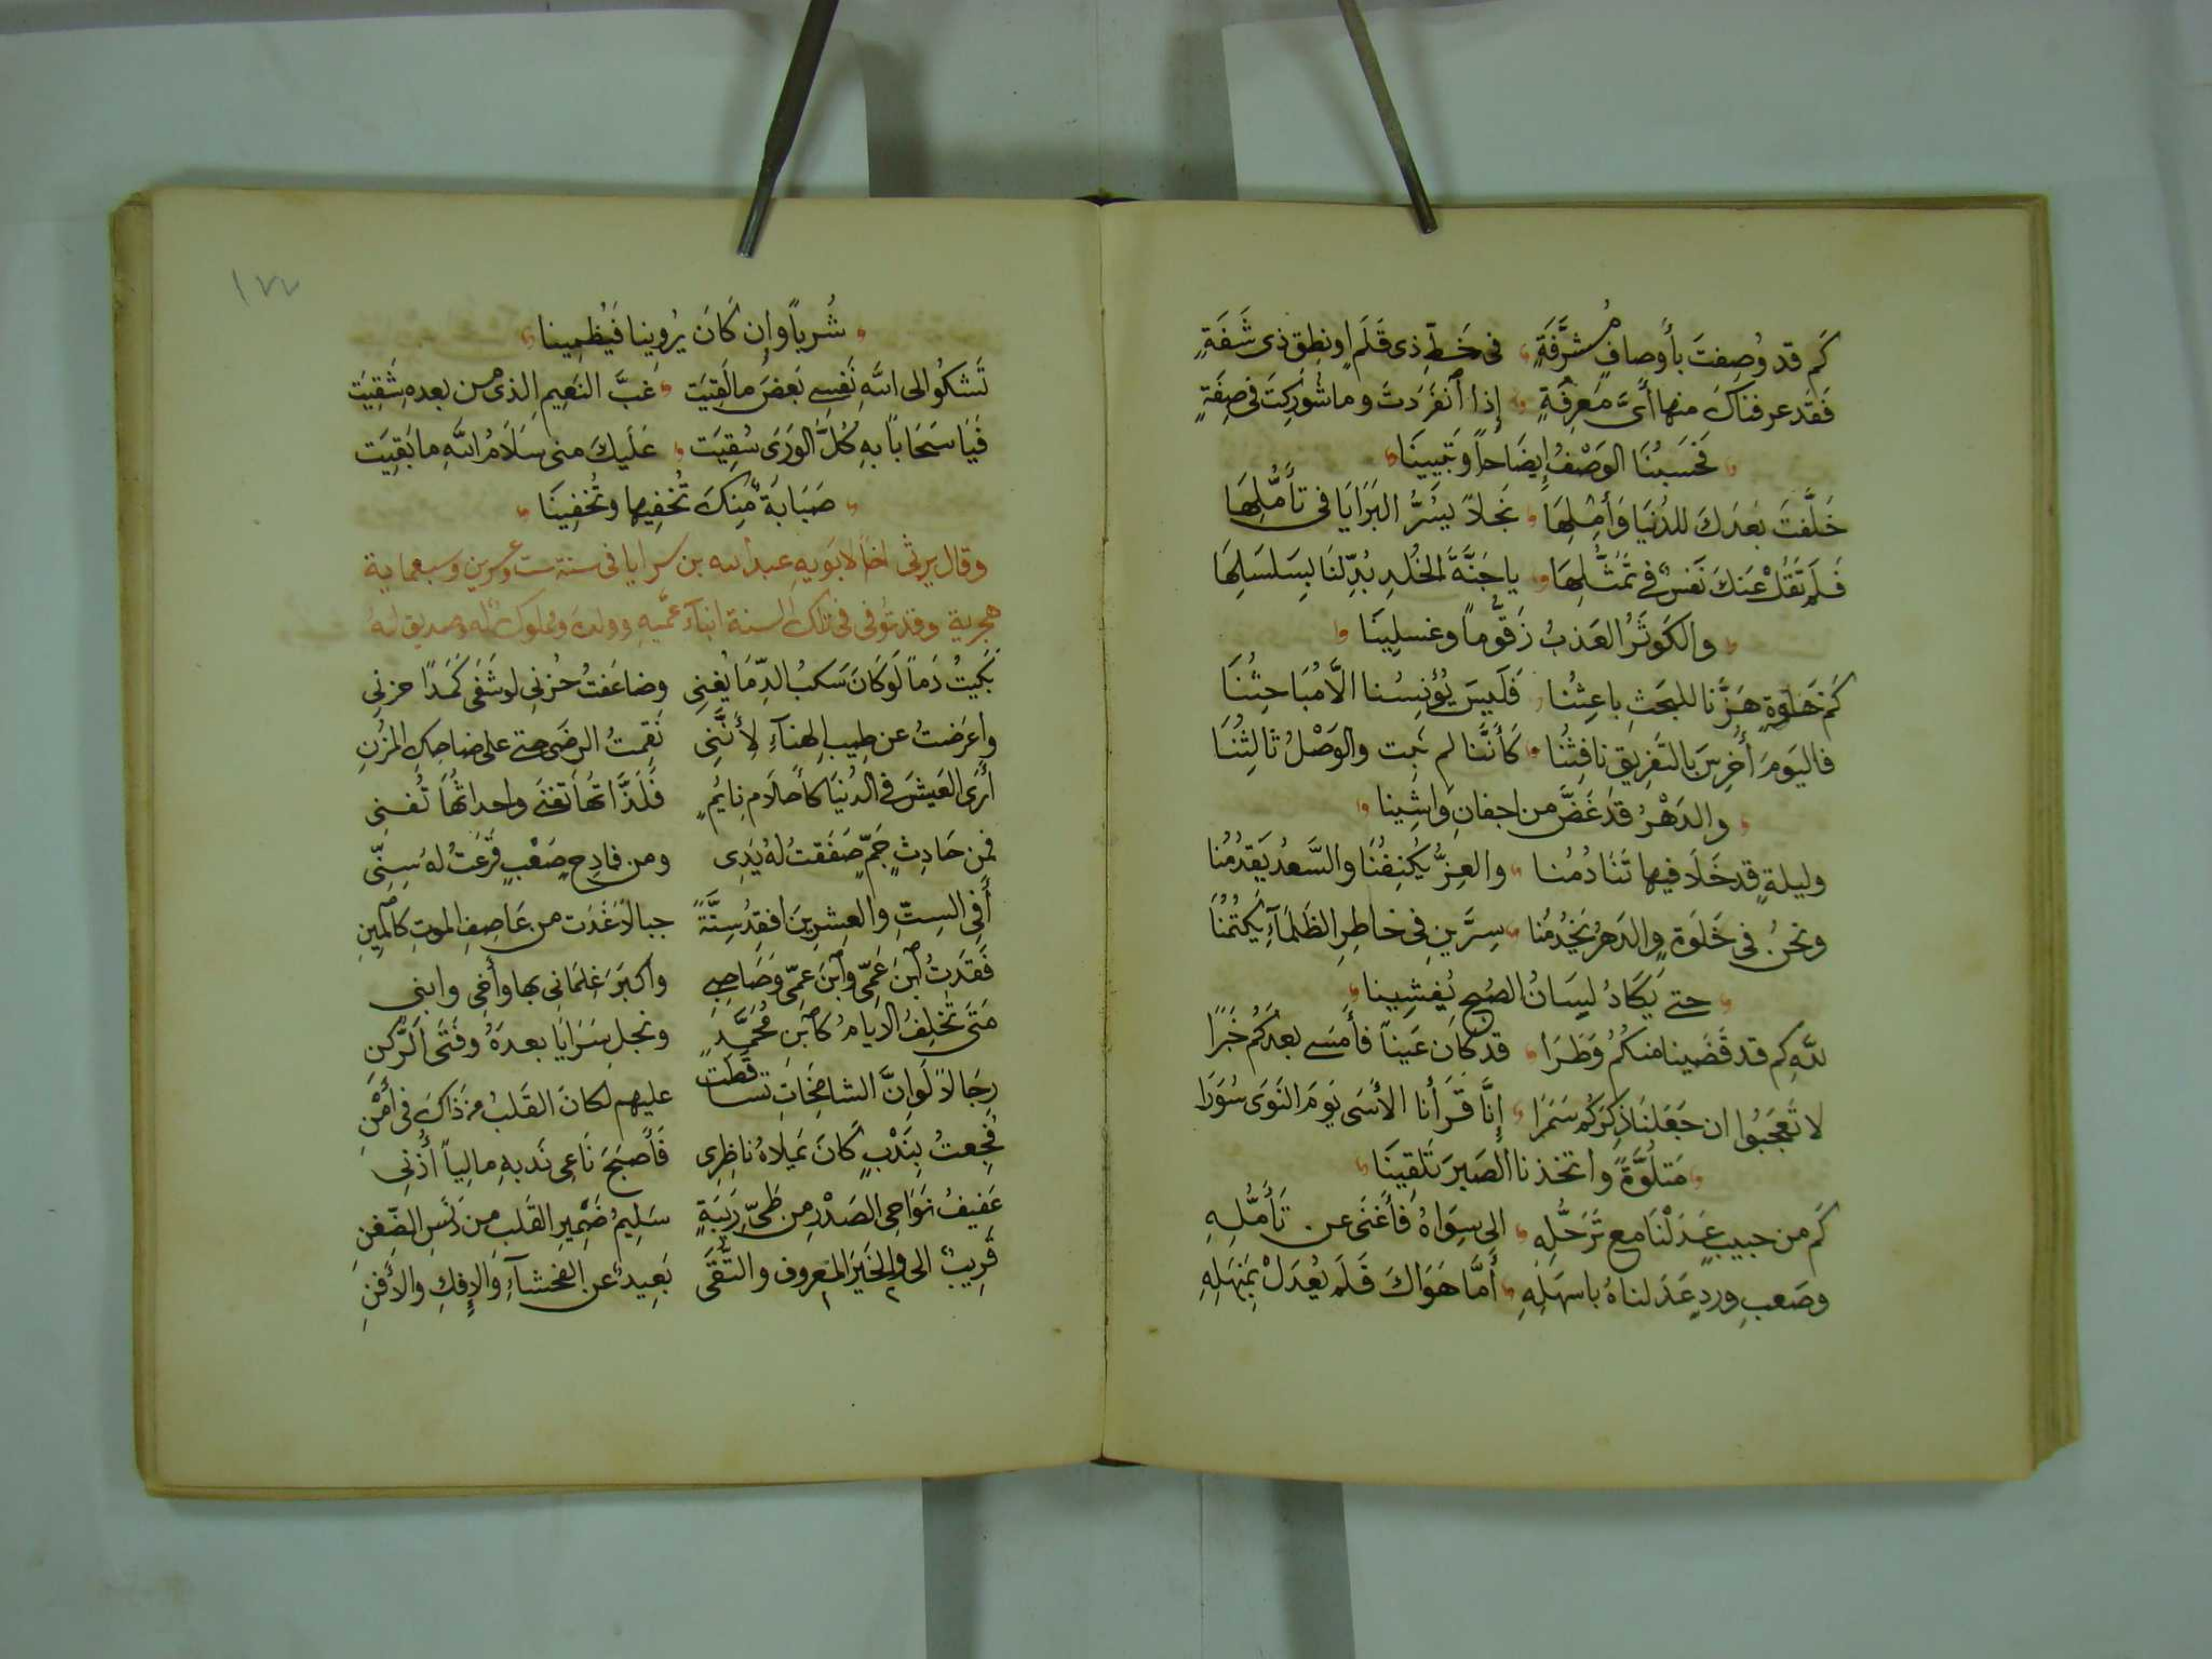 كَم قد وُصِفتَ بأوصافٍ مُشرَّفَةٍ في خَطِّ ذى قَلَمٍ اونطِق ذى شَفَةٍ
فَقد عرفناكَ منها أىَّ مَعرِفَةٍ إذا ٱنفَرَدتَ وما شُورِكتَ في صِفَةٍ
فحَسبُنَا الوَصْفُ إيضَاحاً وتَبيِينَا
خَلَّفتَ بعدَكَ للدُنيَا وَأهلِهَا نجلاً يَسُرُّ البَرَايَا فى تأمُّلِهَا
فَلَم تَقُلْ عَنكَ نَفسٌ في تمَثُّلِهَا ياجَنَّةَ الخُلدِ بُدِّلنَا بِسَلسَلِهَا
والكَوثَرُ العَذبُ زَقُّوماً وغسلِينَا
كَم خَلوَةٍ هَزَّنا للبحَثِ باعِثُنا فَلَيسَ يُؤنِسُنا الَّا مُبَاحثُنَا
فاليَومَ أُخرِسَ بالتَفرِيقِ نافِثُنا كَأنَّنا لم نَبِت والوَصْلُ ثالِثُنَا
والدَهْرُ قد غَضَّ من اجفانِ وَاشِينا
وليلةٍ قد خَلَا فيها تَنَادُمُنا والعِزُّ يَكنِفُنَا والسَّعدُ يَقدُمُنا
ونحنُ في خَلوَةٍ والدَهرُ يَخدُمُنا سِرَّينِ في خاطِرِ الظَلمَآءِ يَكتُمُنَا
حتى يَكَادُ لِسَانُ الصُبحِ يُفشِينا
للهِ كم قد قَضَينا منكُمُ وَطَرَا قد كانَ عَيناً فأَمسَى بعدَكُم خَبَرًا
لا تَعجَبُوا ان جَعَلنَا ذِكرَكُم سَمَرا إنَّا قَرَأنا الأسَى يَومَ النَوَى سُوَرَا
مَتلُوَّةً واتخذنا الصَبرَ تَلقينَا
كَم من حبيبٍ عَدَلْنَا مع تَرَحُّلِهِ الى سِوَاهُ فَأَغنَى عن تَأَمُّلِهِ
وصَعبِ وِردٍ عَدَلناهُ باسهَلِهِ أَمَّا هَوَاكَ فَلَم يُعدَلْ بِمَنهَلِهِ
١٧٧
شُرباً وإن كَانَ يُروِينا فيُظمِينا
تَشكُوا الى اللهِ نَفسِي بَعضَ مالَقِيَت غبَّ النَعِيم الذى من بعدهِ شَقِيَت
فَيَا سَحَاباً بهِ كُلُّ الوَرَى سُقِيَت عَلَيكَ منى سَلَامُ اللهِ ما بَقِيَت
صَبَابَةٌ مِنكَ نُخفِيها وتُخفِينَا
وقال يرثى اخاً لابَويهِ عبد الله بن سرايا فى سنة ست وعشرين وسبعماية
هجرية وقد تُوفى فى تلك السنة ابنآء عمَّيهِ وولدهُ ومملوكٌ له وصديق لهُ
بَكَيتُ دَماً لَو كَانَ سَكبُ الدِمَا يُغنِى وضاعَفتُ حُزنِى لو شَفَى كَمَدًا حزنِى
واعرَضتُ عن طِيبِ الهنآءِ لأنَّنِى نَقِمتُ الرضَى حتى على ضاحِكِ المُزنِ
أرَى العَيشَ في الدُنيَا كأحَلَامِ نايمٍ فَلَذَّاتهُا تَفنَى واحداثُهَا تُفنِى
فمن حَادِثٍ جَمٍّ صَفَقتُ لهُ يَدِى ومن فادِحٍ صَعْبٍ قَرَعتُ لهُ سِنِّى
أَفِى السِتِّ والعِشرِينَ افقِدُ سِتَّةً جبالاً غَدَت من عَاصِفِ الموتِ كالعِهنِ
فَقَدتُ ٱبنَ عَمِّى وٱبنَ عمِّى وَصَاحِبِى واكبَرَ غِلمَانِى بها وأَخِى وابني
مَتى تخلِفُ الايامُ كٱبنِ مُحَمَّدٍ ونجلِ سَرَايَا بعدَهُ وفَتَى الرُكنِ
رِجَالاً لَو انَّ الشامِخَاتِ تسَاقَطَت عليهم لكانَ القَلبُ من ذَاكَ فى أَمْنِ
فُجِعتُ بِنَدْبٍ كَانَ يَملاهُ ناظِرِى فَأَصبَحَ نَاعِى نَدبهِ مالِياً أُذنِى
عَفِيفُ نَوَاحِى الصَدْرِ من طَىِّ رِيبَةٍ سَلِيمُ ضَمِيرِ القَلبِ مِن دَنَسِ الضِغنِ
قَرِيبٌ الى والخَيرِ المَعروف والتُّقَى بَعِيدٌ عن الفحشآءِ والإفكِ والأَفنِ